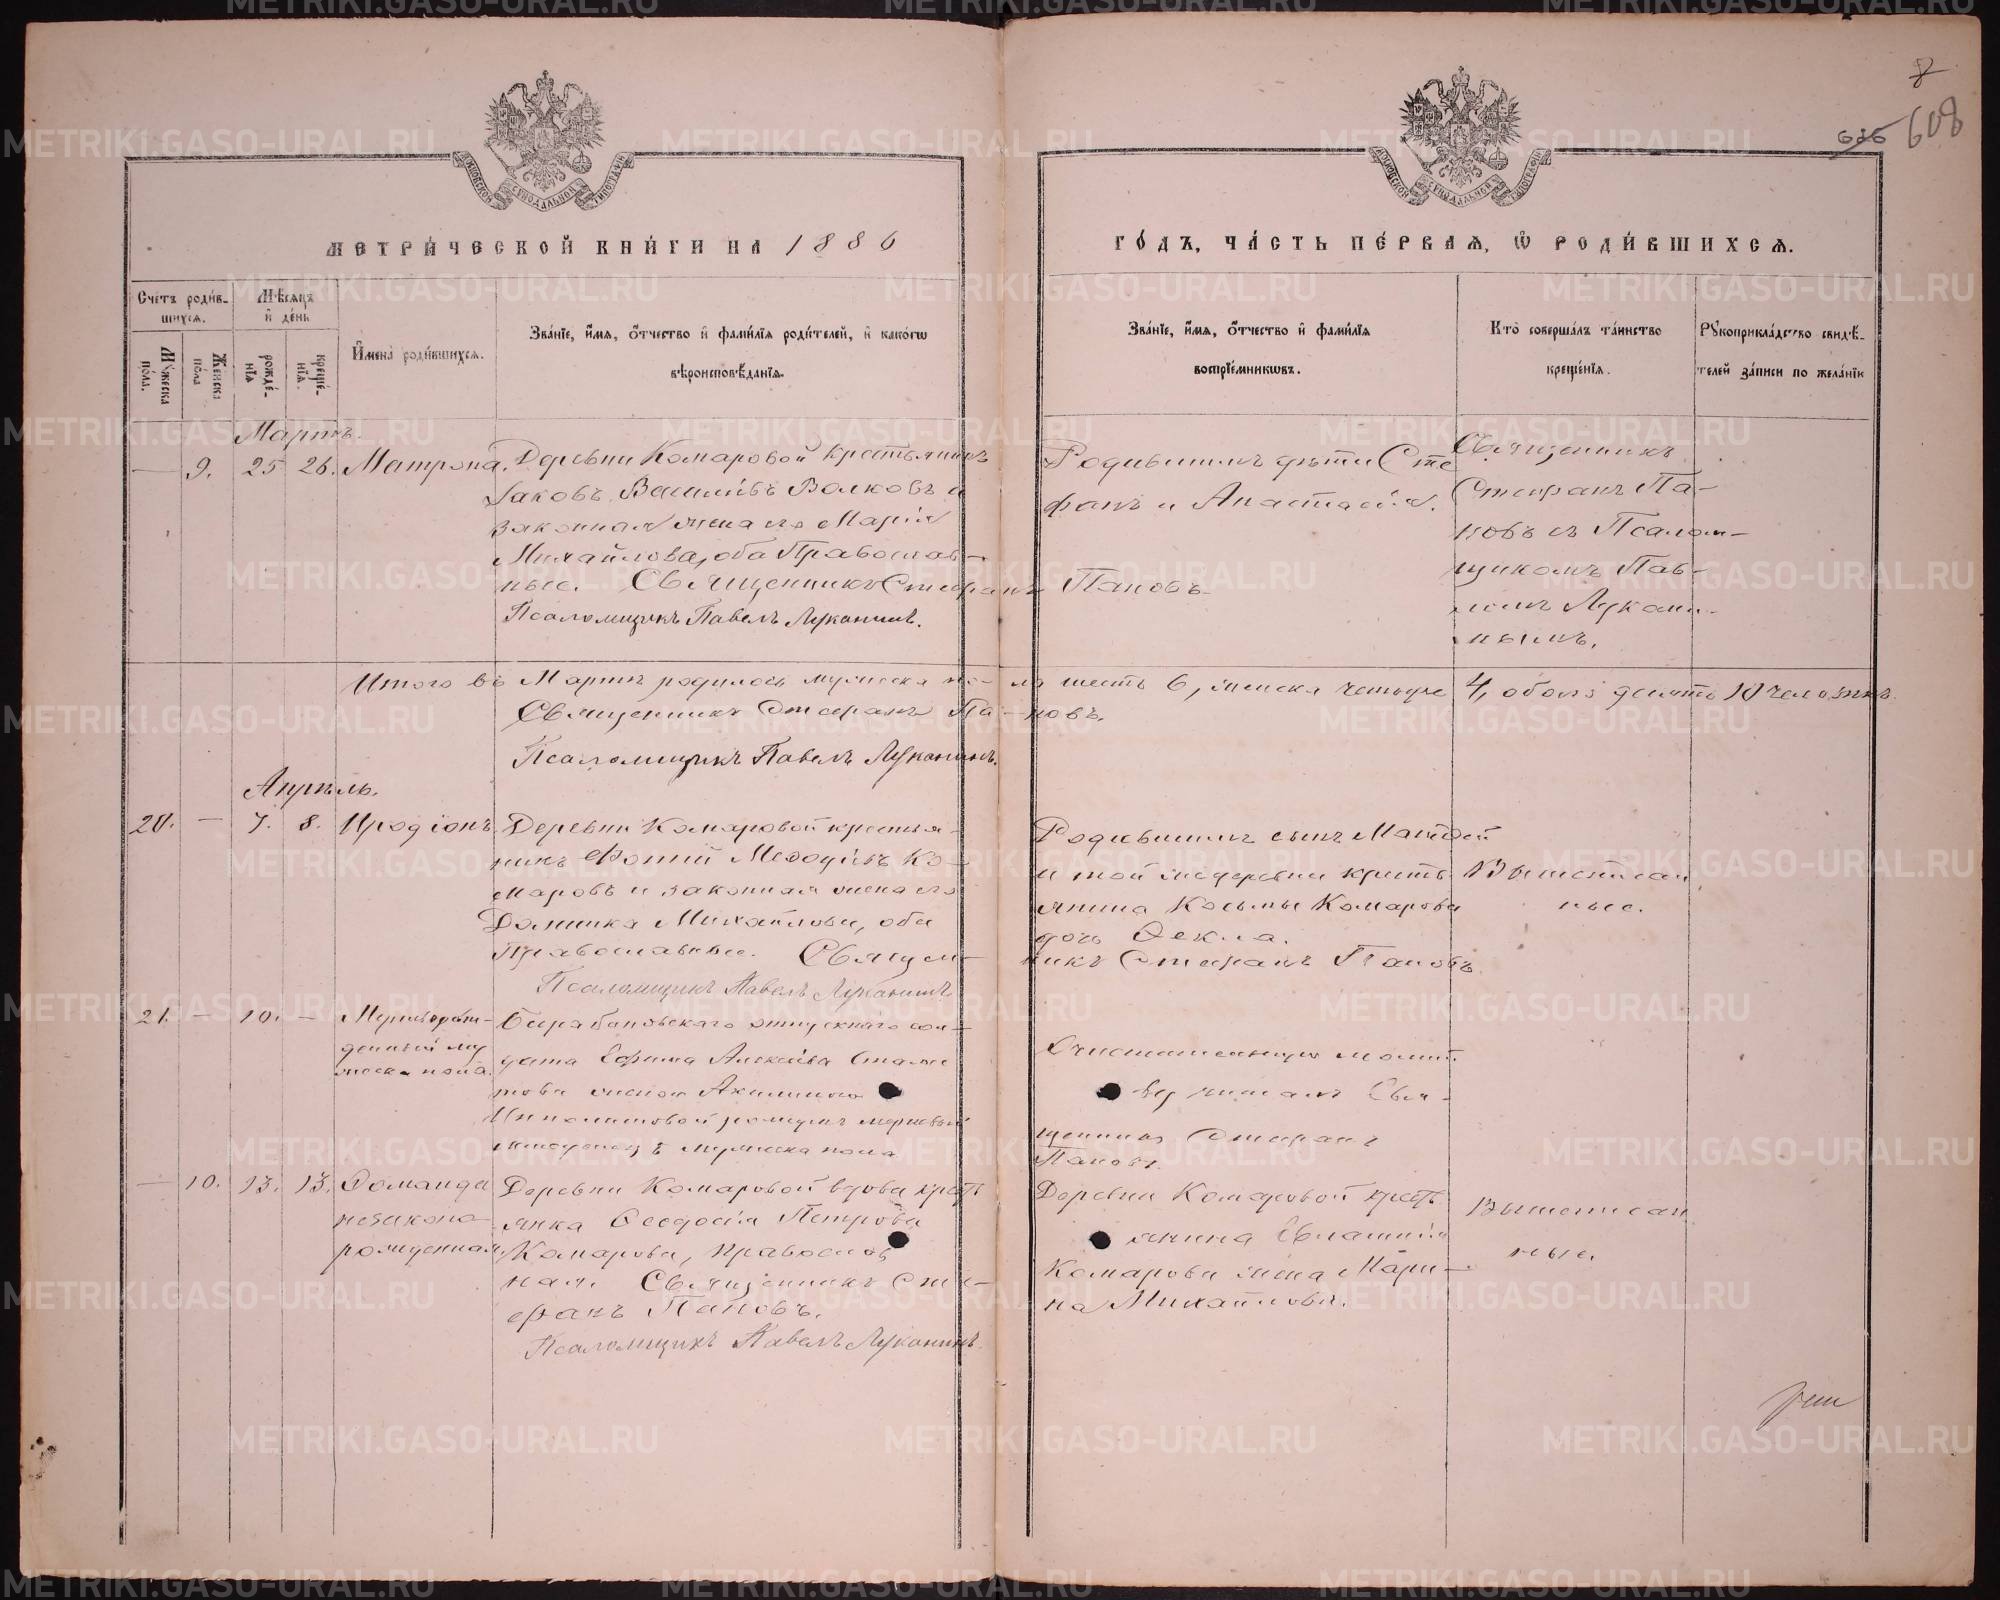 8
636 608
МОСКОВСКОЙ СУНОДАЛЬНОЙ ТИПОГРАФІИ
МОСКОВСКОЙ СУНОДАЛЬНОЙ ТИПОГРАФІИ
МЕТРИ́ЧЕСКОЙ КНИ́ГИ НА 1886
ГО́ДЪ, ЧА́СТЬ ПЕ́РВАЯ, Ѽ РОДИ́ВШИХСЯ.
Счетъ роди́вшихся.
Мужеска по́ла.
Женска по́ла
Мѣсяцъ и де́нь
рожде́нїя
креще́нїя.
Имена́ роди́вшихся.
Зва́нїе, и́мя, о́тчество и фами́лїя роди́телей, и како́гѡ
вѣроисповѣ́данїя.
Зва́нїе, и́мя, о́тчество и фами́лїя
воспрїе́мникѡвъ.
Кто̀ соверша́лъ та́инство
креще́нїя.
Рукоприкла́дство свидѣ́-
телей за́писи по жела́нїю
Мартъ.
— 9. 25 26. Матрона.
Деревни Комаровой крестьянинъ
Іаковъ Василіевъ Волковъ и
законная жена его Марія
Михайлова, оба Православ-
ные. Священникъ Стефанъ Пановъ.
Псаломщикъ Павелъ Луканинъ.
Родившимъ дѣти Сте
фанъ и Анастасія.
Священникъ
Стефанъ Па-
новъ съ Псалом-
щикомъ Пав-
ломъ Лукани-
нымъ.
Итого въ Мартѣ родилось мужеска по- ла шесть 6, женска четыре 4, обоего десять 10 человѣкъ.
Священникъ Стефанъ Па-новъ.
Псаломщикъ Павелъ Луканинъ.
Апрѣль.
20. — 7. 8. Иродіонъ.
Деревни Комаровой крестья-
нинъ Фотій Меѳодіевъ Ко-
маровъ и законная жена его
Домника Михайлова, оба
Православные. Священ-
никъ Стефанъ Пановъ.
Псаломщикъ Павелъ Луканинъ.
Родившимъ сынъ Матѳей
и той же деревни кресть
янина Косьмы Комарова
дочь Ѳекла.
Вышеписан
ные.
21. — 10. — Мертворож-
денный му
жеска пола.
отпускнаго сол-
дата Ефима Алексѣева
това женою Акилиною
Ипполитовой рожденъ мертвый
младенецъ мужеска пола
Очистительную молит
ву читалъ Свя-
щенникъ Стефанъ
Пановъ.
— 10. 13. 13. Ѳомаида
незакона-
рожденная.
Деревни Комаровой вдова крест
янка Ѳеодосія Петрова
Комарова, православ
ная. Священникъ Сте-
фанъ Пановъ.
Псаломщикъ Павелъ Луканинъ.
Деревни Комаровой крест
янина Евлампія
Комарова жена Мари-
на Михайлова.
Вышеписан
ные.
METRIKI.GASO-URAL.RU